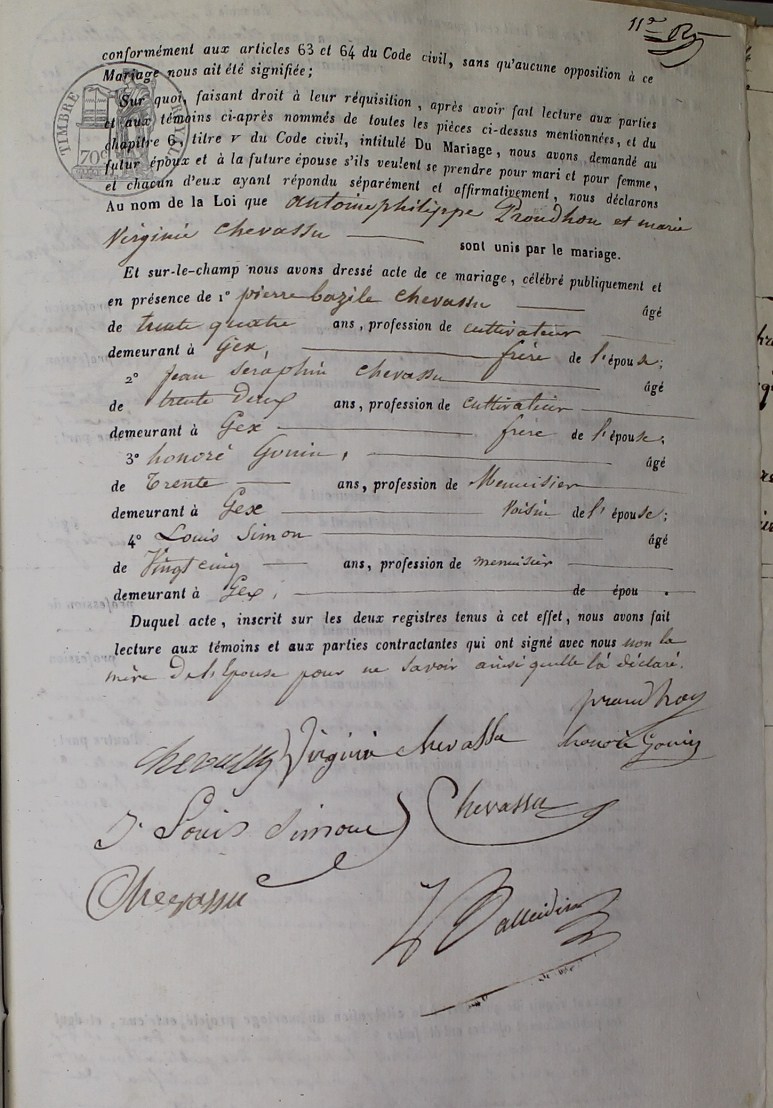 11e
conformément aux articles 63 et 64 du Code civil, sans qu'aucune opposition à ce
Mariage nous ait été signifiée;
Sur quoi, faisant droit à leur réquisition, après avoir fait lecture aux parties
et aux témoins ci-après nommés de toutes les pièces ci-dessus mentionnées, et du
chapitre 6, titre v du Code civil, intitulé Du Mariage, nous avons demandé au
futur époux et à la future épouse s'ils veulent se prendre pour mari et pour femme,
et chacun d'eux ayant répondu séparément et affirmativement, nous déclarons
Au nom de la Loi que antoine philippe Proudhon et marie
Virginie Chevassu sont unis par le mariage.
Et sur-le-champ nous avons dressé acte de ce mariage, célébré publiquement et
en présence de 1° pierre bazile Chevassu âgé
de trente quatre ans, profession de cultivateur
demeurant à Gex, frère de l'épouse;
2° jean Seraphin Chevassu âgé
de trente deux ans, profession de cultivateur
demeurant à Gex frère de l'épouse;
3° honoré Gonin, âgé
de Trente ans, profession de Menuisier
demeurant à Gex Voisin de l'épouse;
4° Louis Simon âgé
de Vingt cinq ans, profession de menuisier
demeurant à Gex, de épou .
Duquel acte, inscrit sur les deux registres tenus à cet effet, nous avons fait
lecture aux témoins et aux parties contractantes qui ont signé avec nous non la
mère De l'Epouse pour ne savoir ainsi quelle la déclaré.
Virginie chevassu honoré Gonin
Louis Simon Chevassu
Chevassu
TIMBRE
70c